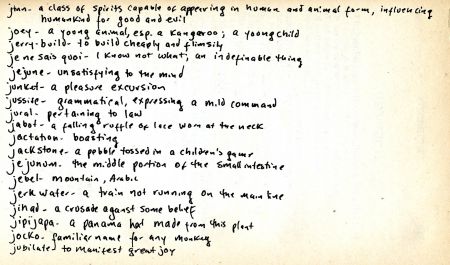 jinn- a class of spirits capable of appearing in human and animal form, influencing
humankind for good and evil
joey- a young animal, esp. a kangaroo; a young child
jerry-build- to build cheaply and flimsily
je ne sais quoi- I know not what; an indefinable thing
jejune- unsatisfying to the mind
junket- a pleasure excursion
jussive- grammatical, expressing a mild command
jural- pertaining to law
jabot- a falling ruffle of lace worn at the neck
jactation- boasting
jackstone- a pebble tossed in a children's game
jejunum- the middle portion of the small intestine
jebel- mountain, Arabic
jerkwater- a train not running on the main line
jihad- a crusade against some belief
jipijapa- a panama hat made from this plant
jocko- familiar name for any monkey
jubilate- to manifest great joy